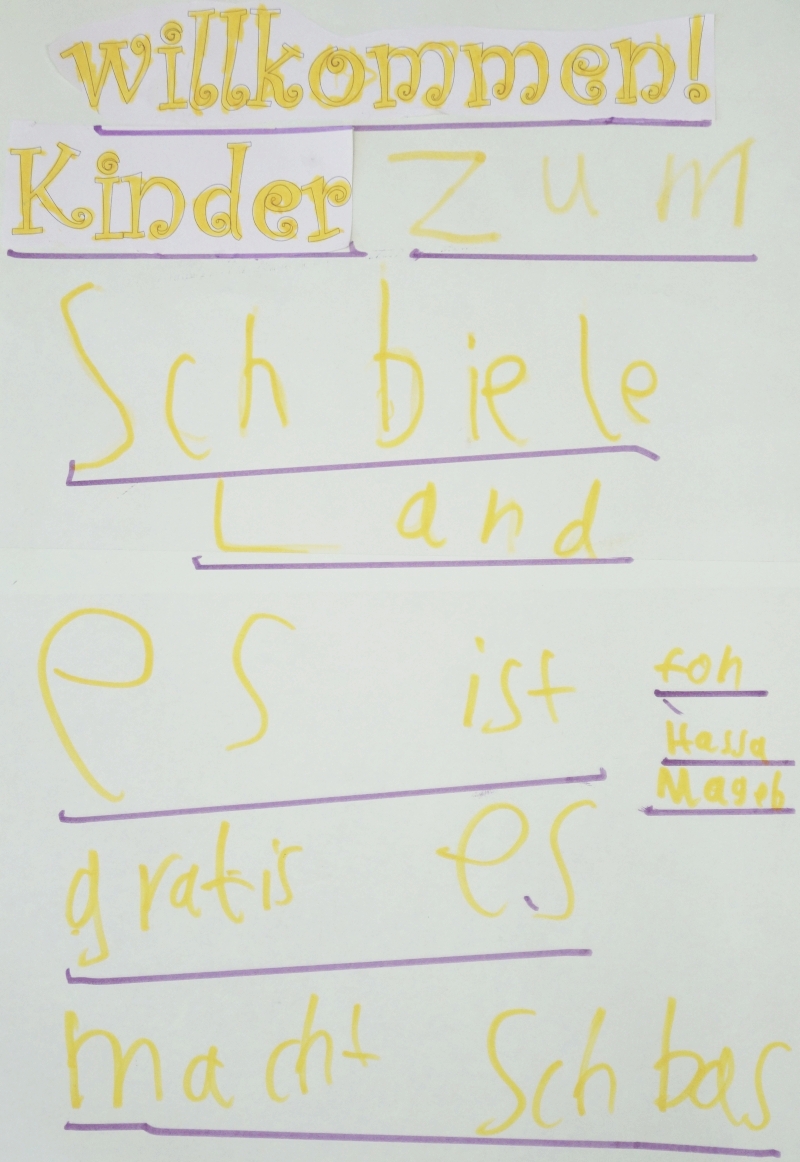 willkommen!
Kinder zum
Schbiele
Land
es ist
foh
Hassa
Mageb
gratis es
macht Schbas